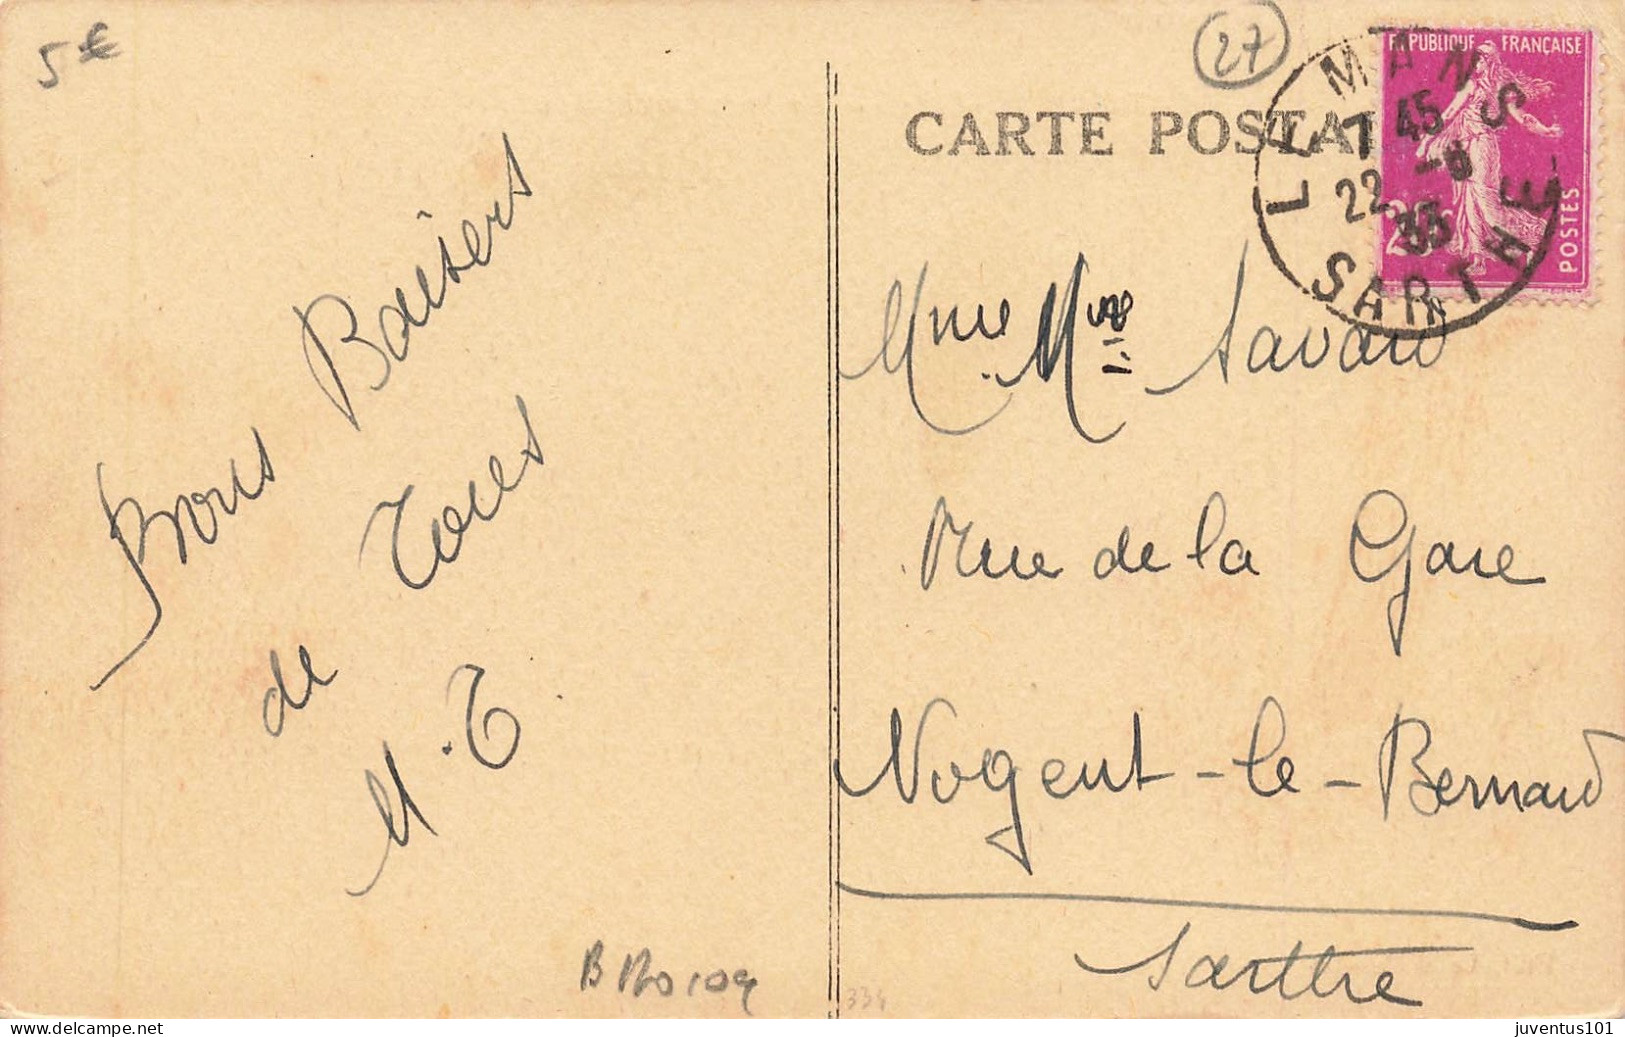 5 €
27
CARTE POSTA
REPUBLIQUE FRANÇAISE
20c
POSTES
LE MANS
7 45
22 -8
33
SARTHE
Bons Baisers
de Tous
M.T.
Mme Savard
Rue de la Gare
Nogent-le-Bernard
Sarthe
334
www.delcampe.net
juventus101